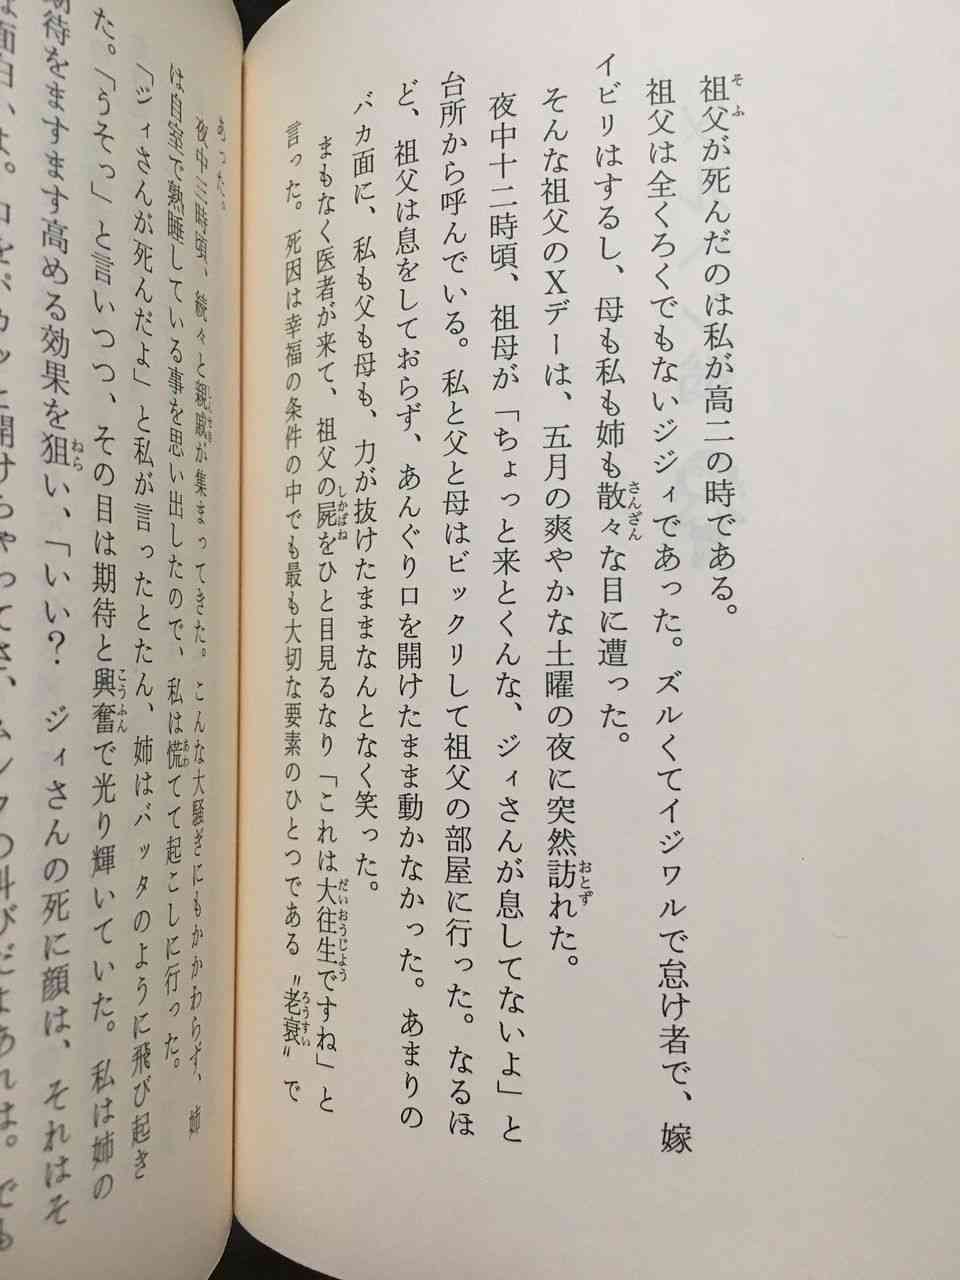 祖父が死んだのは私が高二の時である。
祖父は全くろくでもないジジィであった。ズルくてイジワルで怠け者で、嫁
イビリはするし、母も私も姉も散々な目に遭った。
そんな祖父のXデーは、五月の爽やかな土曜の夜に突然訪れた。
夜中十二時頃、祖母が「ちょっと来とくんな、ジィさんが息してないよ」と
台所から呼んでいる。私と父と母はビックリして祖父の部屋に行った。なるほ
ど、祖父は息をしておらず、あんぐり口を開けたまま動かなかった。あまりの
バカ面に、私も父も母も、力が抜けたままなんとなく笑った。
まもなく医者が来て、祖父の屍をひと目見るなり「これは大往生ですね」と
言った。死因は幸福の条件の中でも最も大切な要素のひとつである〝老衰〟で
あった。
夜中三時頃、続々と親戚が集まってきた。こんな大騒ぎにもかかわらず、姉
は自室で熟睡している事を思い出したので、私は慌てて起こしに行った。
「ジィさんが死んだよ」と私が言ったとたん、姉はバッタのように飛び起き
た。「うそっ」と言いつつ、その目は期待と興奮で光り輝いていた。私は姉の
期待をますます高める効果を狙い、「いい? ジィさんの死に顔は、それはそ
面白いよ。口をパカッと開けちゃってさ、ムンクの叫びだよあれは。でも